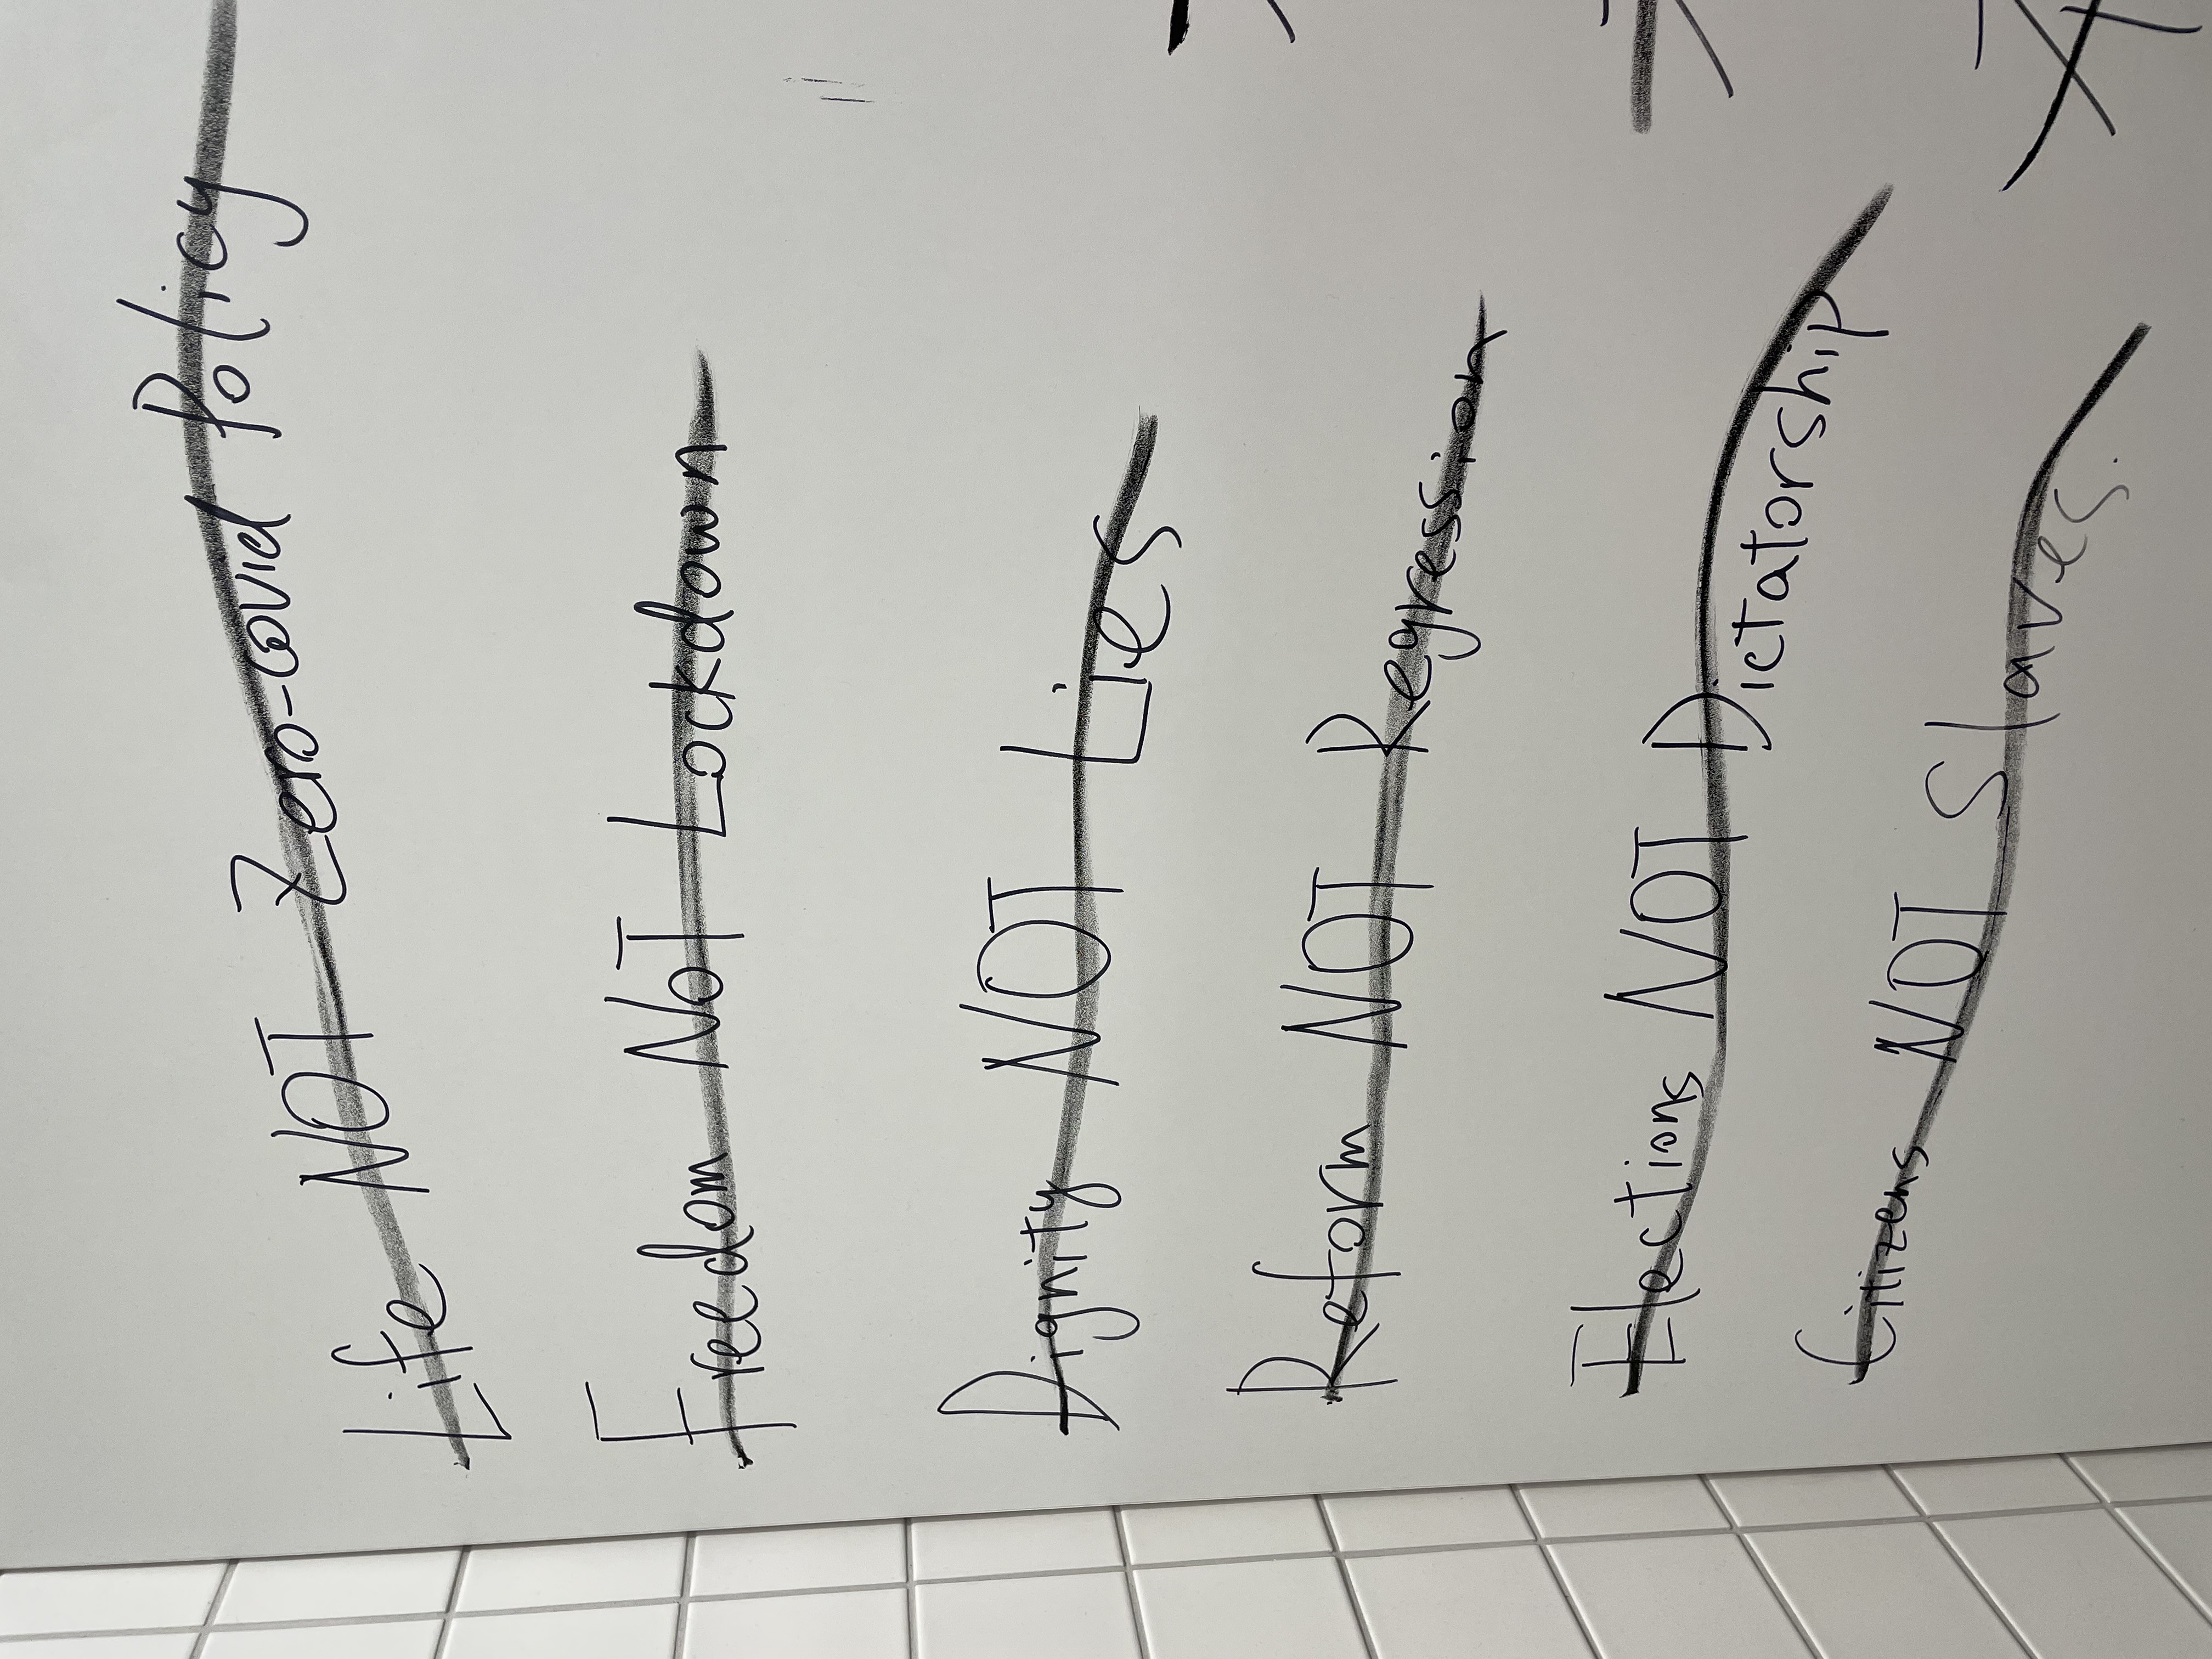 Life NOT Zero-covid Policy
Freedom NOT Lockdown
Dignity NOT Lies
Reform NOT Regression
Elections NOT Dictatorship
Citizens NOT Slaves.